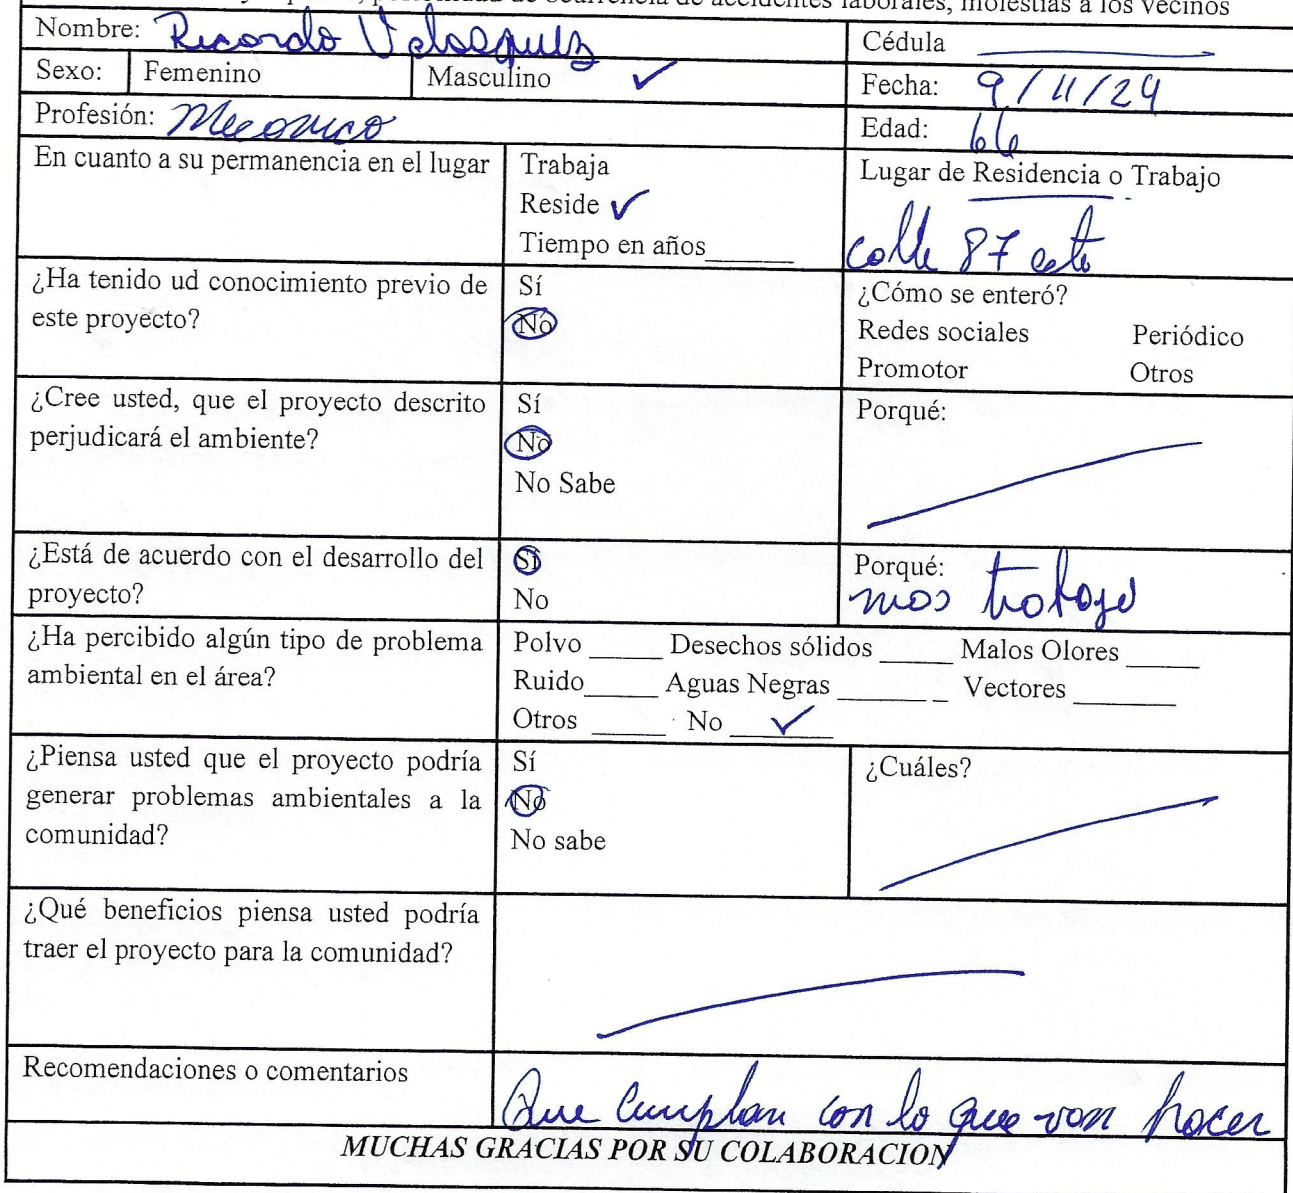 de ocurrencia de accidentes laborales, molestias a los vecinos
Nombre: Ricardo Velasquez
Cédula
Sexo: Femenino Masculino ✓
Fecha: 9/11/24
Profesión: Mecanico
Edad: 66
En cuanto a su permanencia en el lugar
Trabaja
Reside ✓
Tiempo en años______
Lugar de Residencia o Trabajo
calle 87 este
¿Ha tenido ud conocimiento previo de
este proyecto?
Sí
No
¿Cómo se enteró?
Redes sociales Periódico
Promotor Otros
¿Cree usted, que el proyecto descrito
perjudicará el ambiente?
Sí
No
No Sabe
Porqué:
¿Está de acuerdo con el desarrollo del
proyecto?
Sí
No
Porqué:
mas trabajo
¿Ha percibido algún tipo de problema
ambiental en el área?
Polvo _____ Desechos sólidos _____ Malos Olores _____
Ruido_____ Aguas Negras _______ _ Vectores _______
Otros _____ No ✓
¿Piensa usted que el proyecto podría
generar problemas ambientales a la
comunidad?
Sí
No
No sabe
¿Cuáles?
¿Qué beneficios piensa usted podría
traer el proyecto para la comunidad?
Recomendaciones o comentarios
Que cumplan con lo que van hacer
MUCHAS GRACIAS POR SU COLABORACION